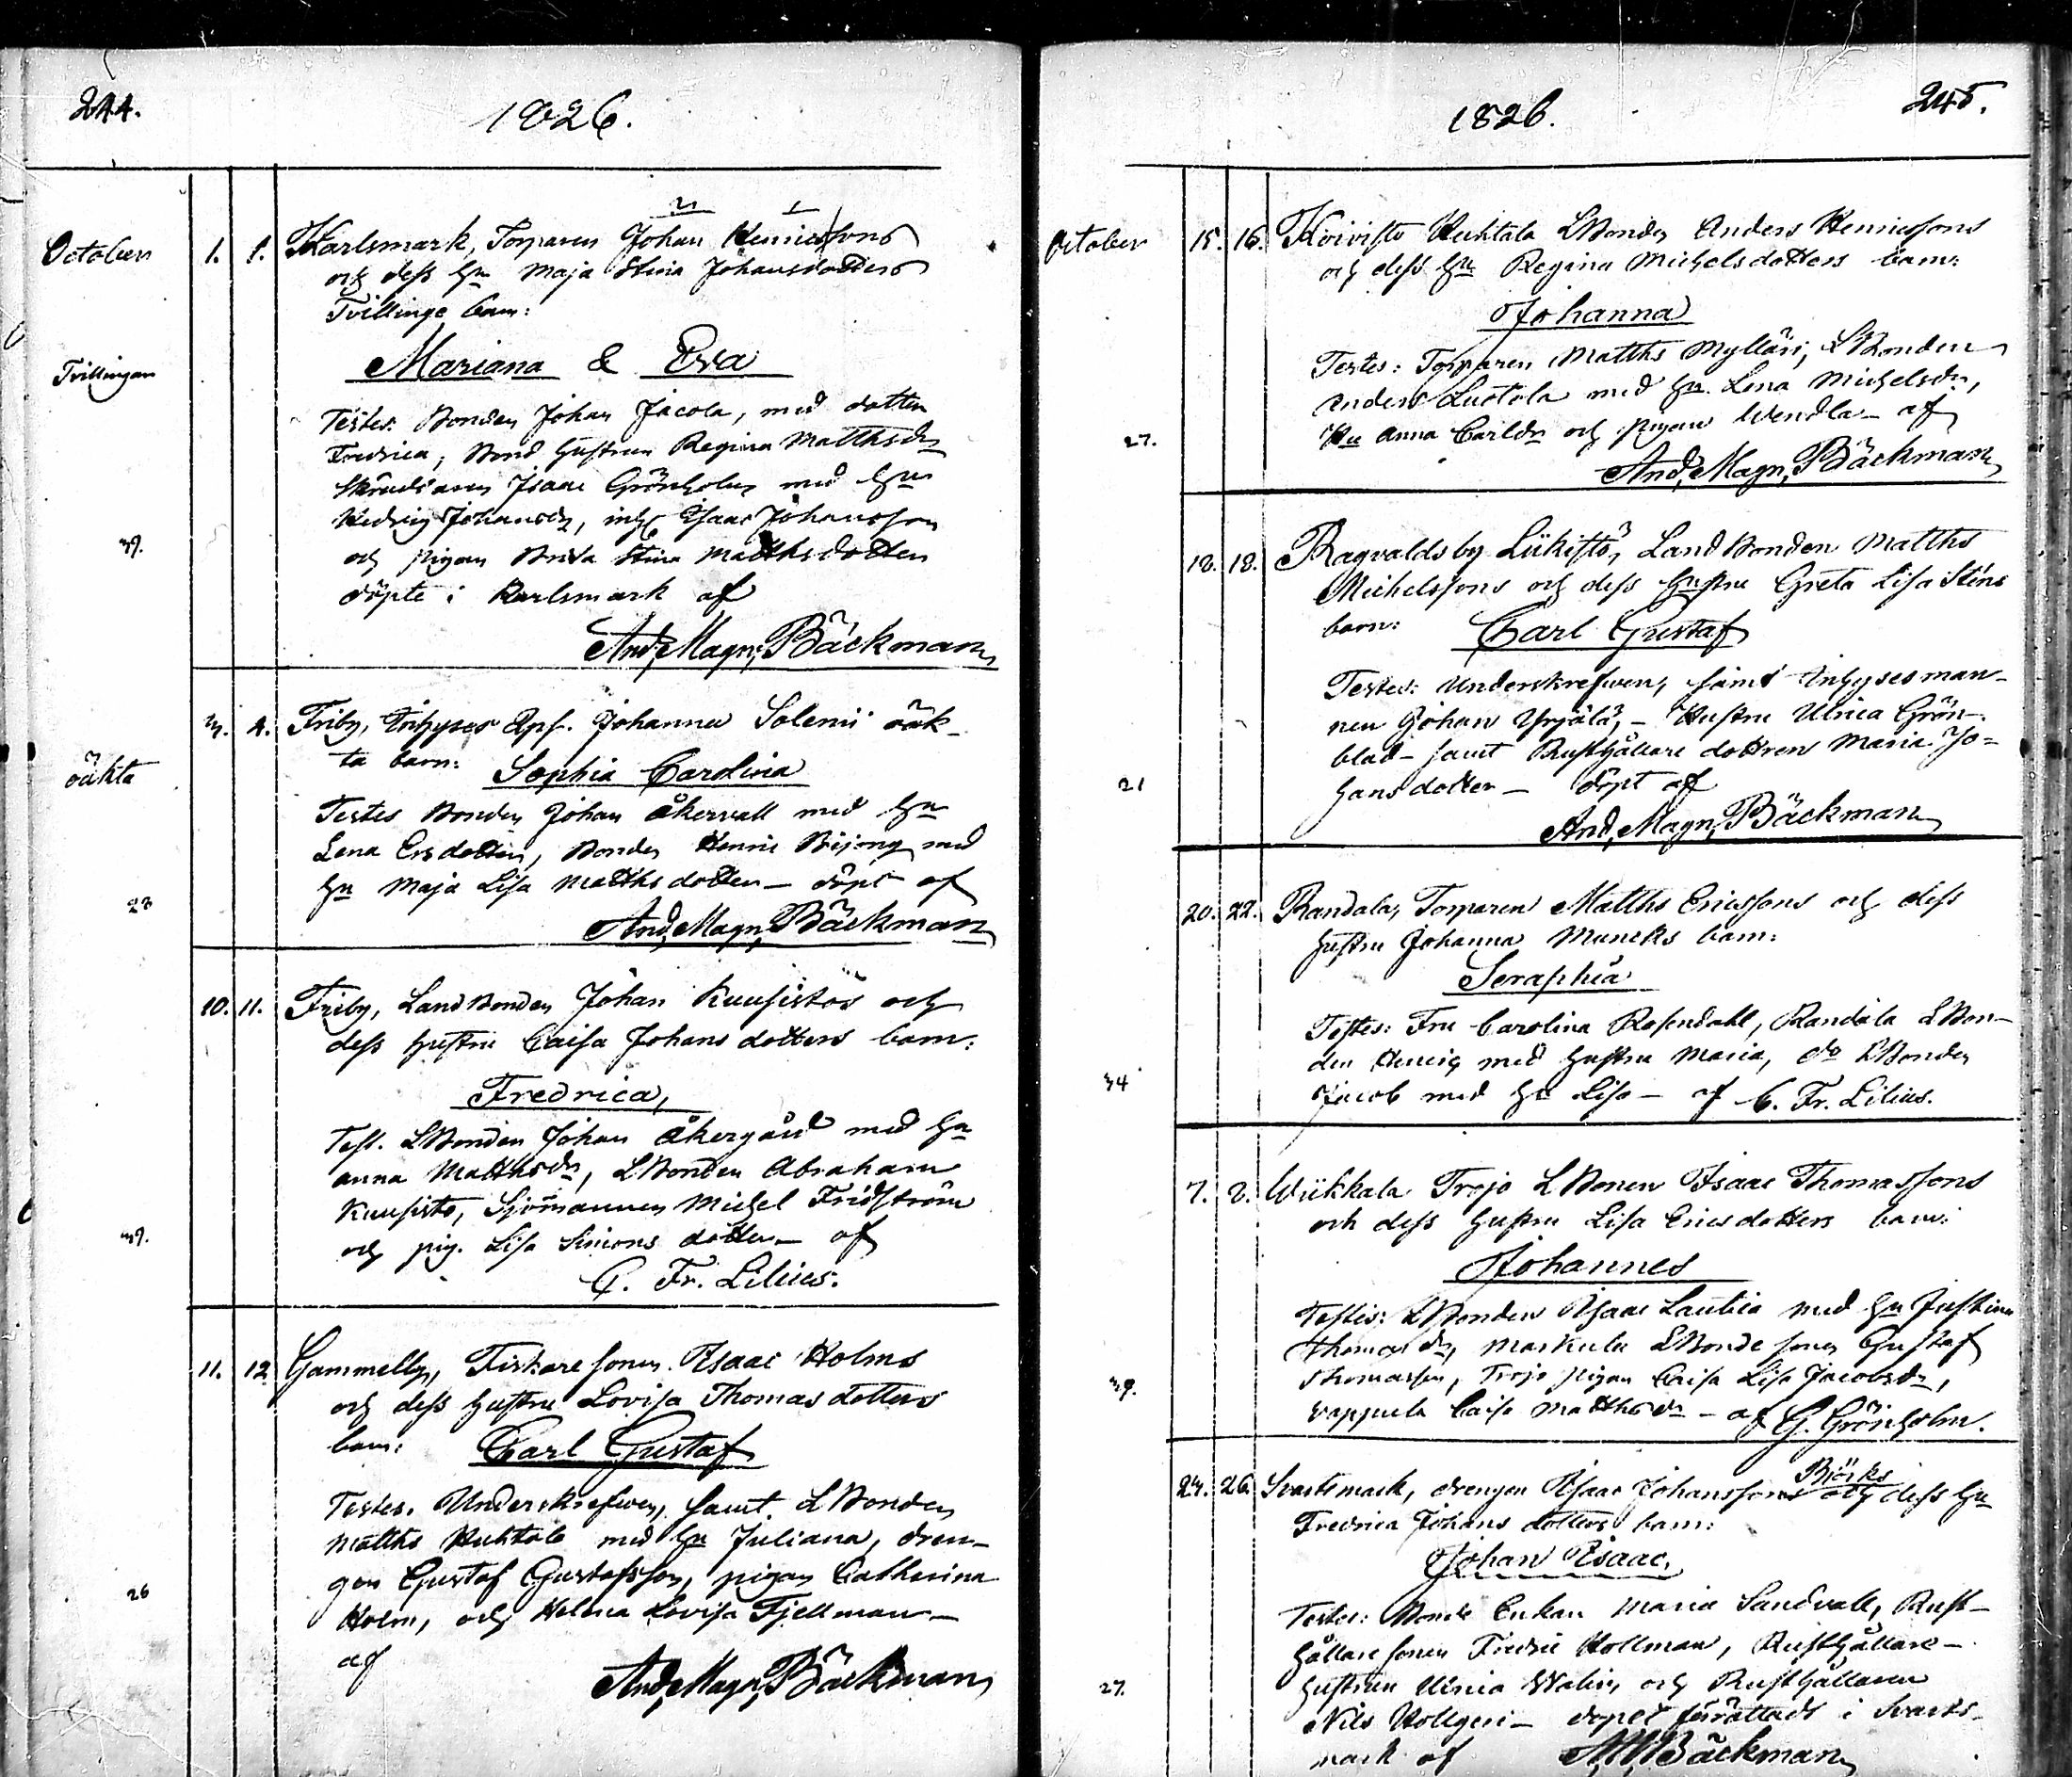 244.
1826.
October 1. 1. Karlsmark, Torparen Johan Henricssons
och dess Hu Maja Stina Johansdotters
Tvillinge barn:
Tvillingar
Mariana & Eva
Testes: Bonden Johan Jacola, med dotter
Fredrica, Bond hustrun Regina Matthsdr
Isaac Grönholm med Hu
Hedvig Johansdr, inh. Isaac Johansson
39. och pigan Brita Stina Matthsdotter
döpte i Karlsmark af
And. Magn. Bäckman
3. 4. Friby, Inhyses Johanna Solenii oäk-
oäkta
ta barn: Sophia Carolina
Testes Bonden Johan Åkervall med Hu
Lena Ersdotter, Bonden Henric med
23 Hu Maja Lisa Matthsdotter - döpt af
And. Magn. Bäckman
10. 11. Friby, Landbonden Johan Kuusistos och
dess hustru Caisa Johansdotters barn:
Fredrica,
Test. LBonden Johan Åkergård med Hu
Anna Matthsdr, LBonden Abraham
Kuusisto, Sjömannen Michel Fridström
39. och pig. Lisa Simonsdotter - af
C. Fr. Lilius.
11. 12. Gammelby, Fiskare sonen Isaac Holms
och dess hustru Lovisa Thomasdotters
barn: Carl Gustaf
Testes. Underskrefven, samt LBonden
Matths Huktala med Hu Juliana, dren-
gen Gustaf Gustafsson, pigan Catharina
26 Holm, och Helena Lovisa Fjellman -
af
And. Magn. Bäckman
245.
1826.
October 15. 16. Koivisto Huktala LBonden Anders Henricssons
och dess Hu Regina Michelsdotters barn:
Johanna
Testes: Torparen Matths Mylläri, LBonden
Anders Luotola med Hu. Lena Michelsdr,
27. Hu Anna Carlsdr och pigan Wendla - af
And. Magn. Bäckman
18. 18. Ragvaldsby Liikistö, Landbonden Matths
Michelssons och dess hustru Greta Lisa Stens
barn: Carl Gustaf
Testes: Underskrefven, samt Inhysesman-
nen Johan Yrjälä, - Hustru Ulrica Grön-
blad - samt Rusthållare dottren Maria Jo-
21 hansdotter - döpt af
And. Magn. Bäckman
20. 22. Randala, Torparen Matths Ericssons och dess
hustru Johanna Muncks barn:
Seraphia
Testes: Fru Carolina Rosendahl, Randala LBon-
den Henric med hustru Maria, do LBonden
34 Jacob med Hu Lisa - af C. Fr. Lilius.
7. 8. Wiikkala Trojo LBonen Isaac Thomassons
och dess hustru Lisa Ericsdotters barn:
Johannes
Testes: LBonden Isaac Lautila med Hu Justina
Thomasdr, Markula LBonde sonen Gustaf
39. Thomasson, Trojo pigan Caisa Lisa Jacobsdr,
Vappula Caisa Matthsdr - af G. Grönholm.
24. 26. Svartsmark, drengen Isaac Johanssons Björks och dess Hu
Fredrica Johansdotters barn:
Johan Isaac.
Testes: Bonde Enkan Maria Sandvall, Rust-
hållare sonen Fredric Hollman, Rusthållare-
27. hustrun Ulrica Walin, och Rusthållaren
Nils - dopet förättadt i Svarts-
mark af A. M. Bäckman